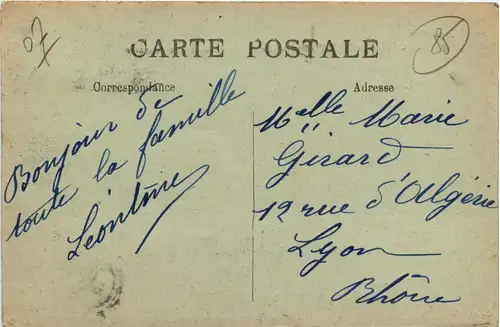 07
85
CARTE POSTALE
Correspondance
Bonjour de
toute la famille
Léontine
Adresse
Melle Marie
Girard
12 rue d'Algérie
Lyon
Rhône